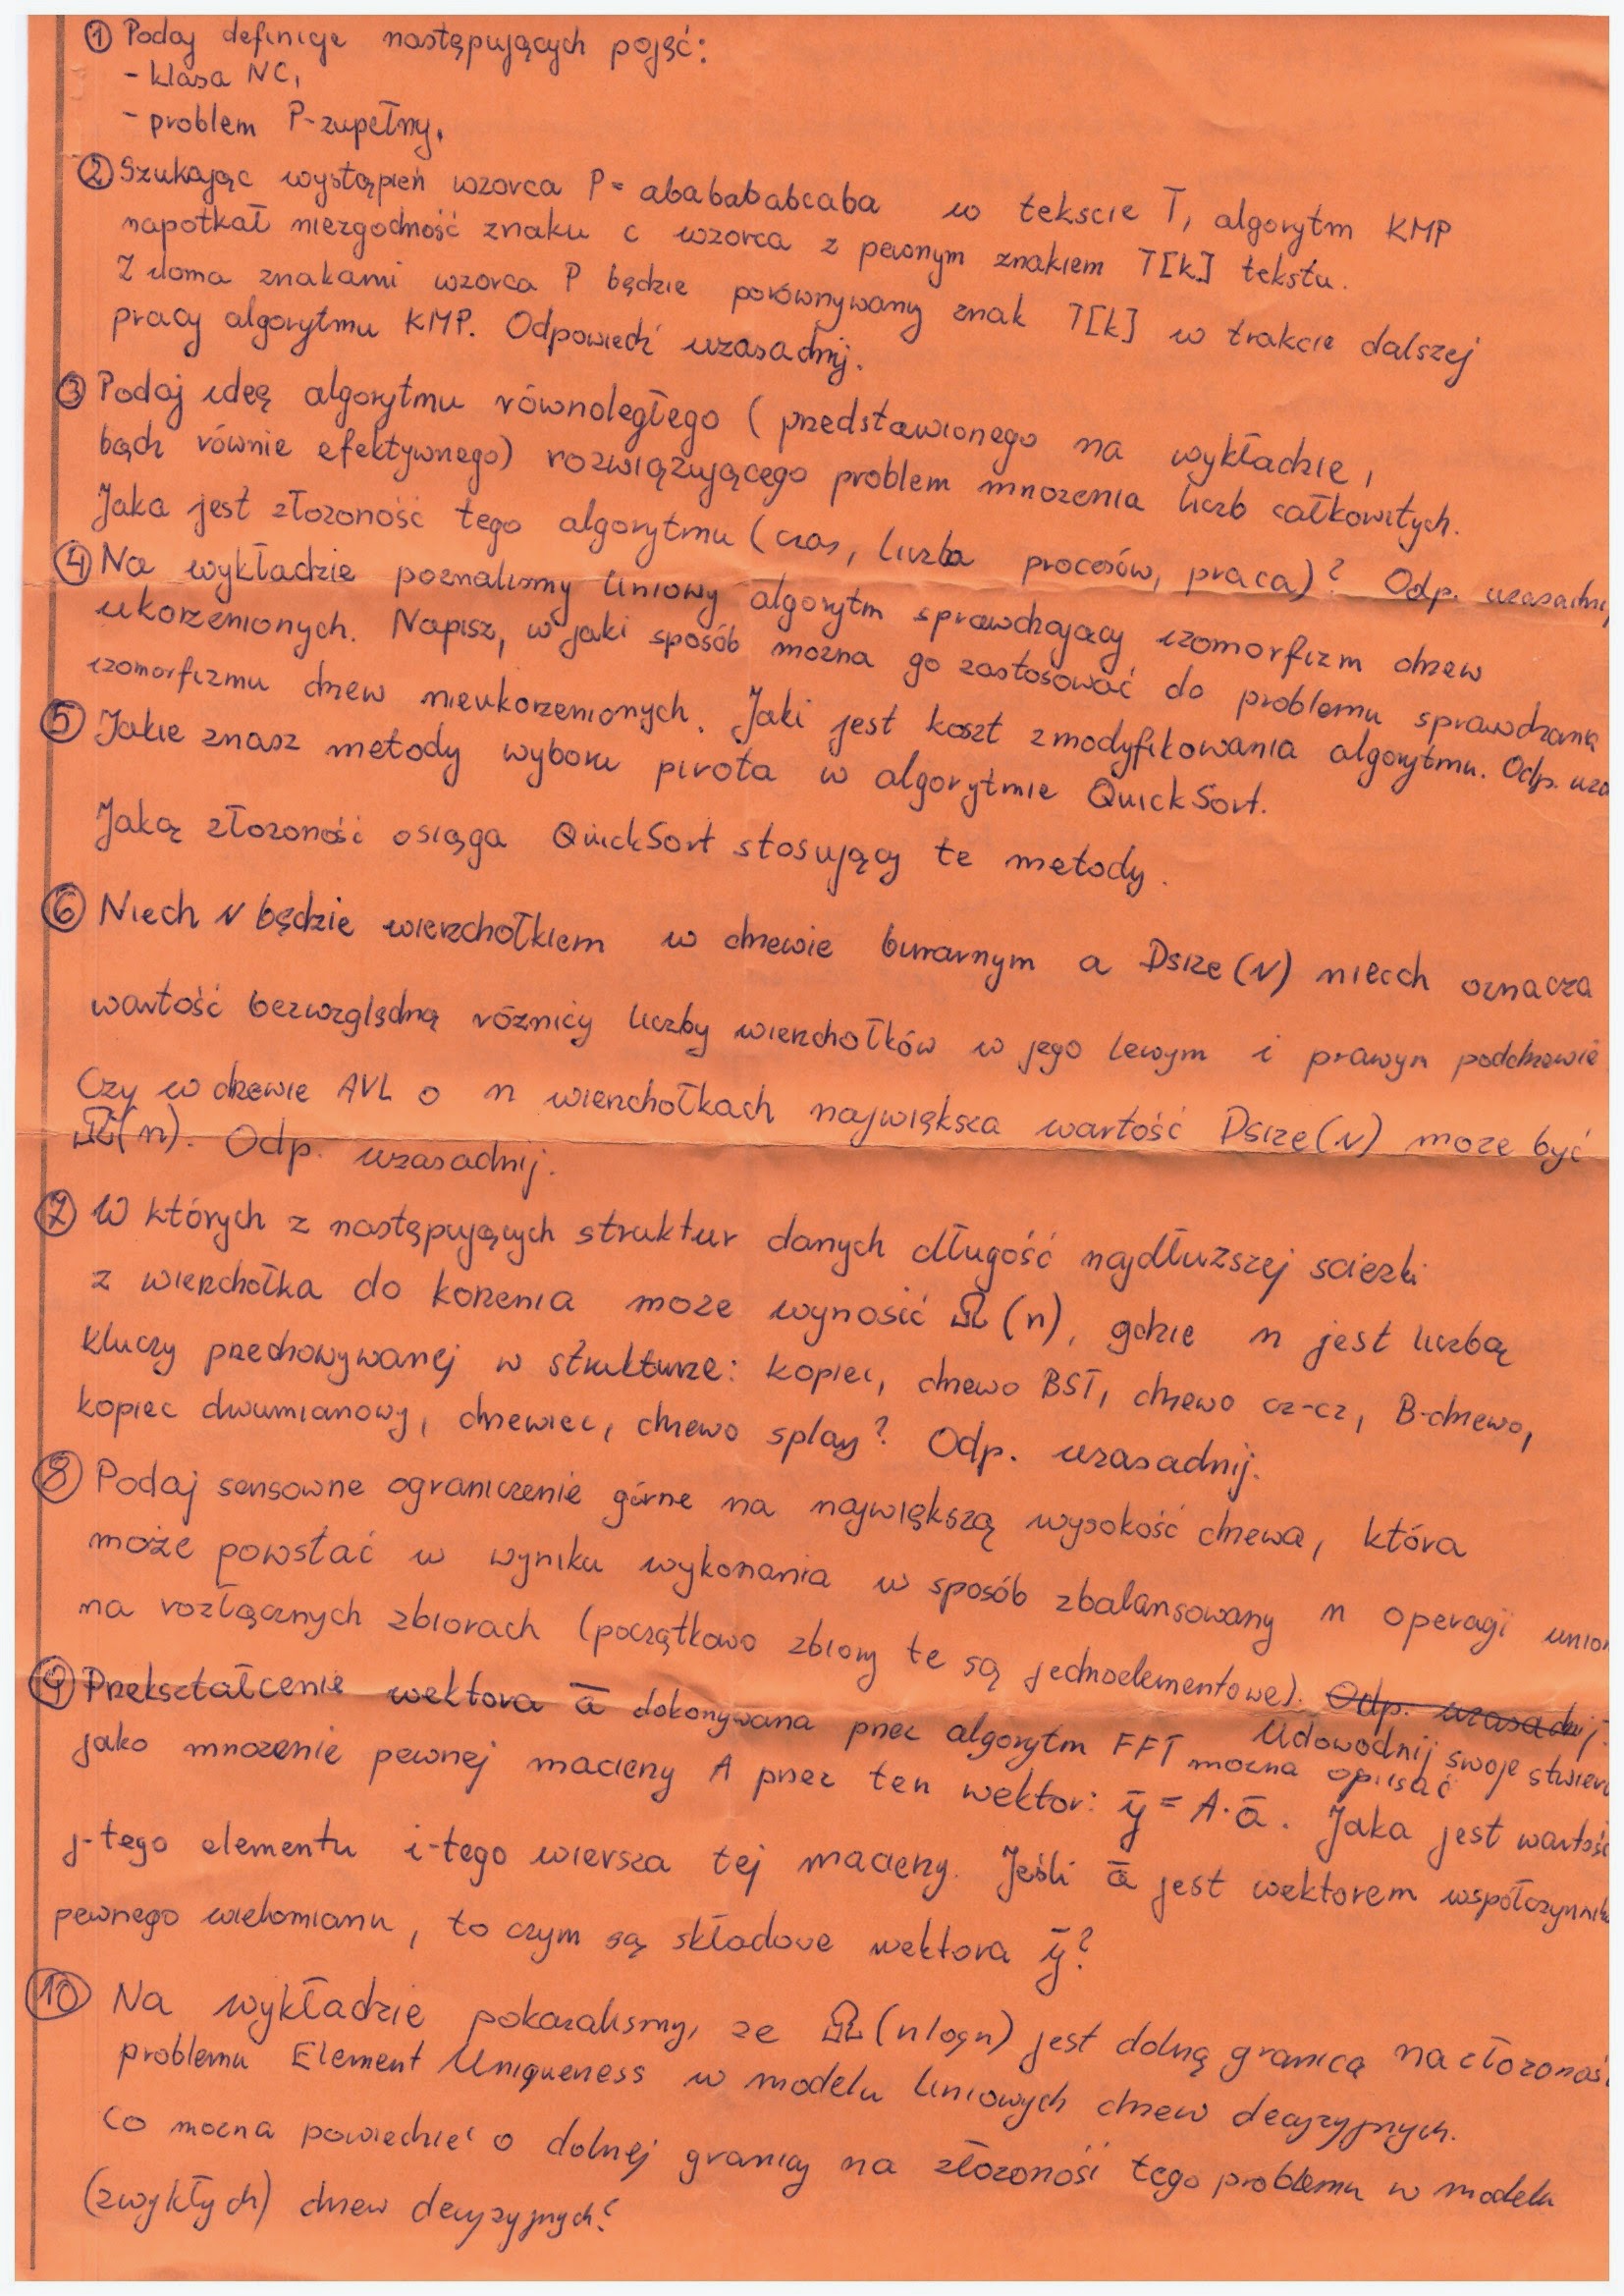 ① Podaj definicje następujących pojęć:
- klasa NC,
- problem P-zupełny.
② Szukając wystąpień wzorca P = abababababcaba w tekscie T, algorytm KMP
napotkał niezgodność znaku c wzorca z pewnym znakiem T[k] tekstu.
Z iloma znakami wzorca P będzie porównywany znak T[k] w trakcie dalszej
pracy algorytmu KMP. Odpowiedź uzasadnij.
③ Podaj ideę algorytmu równoległego (przedstawionego na wykładzie,
bądź równie efektywnego) rozwiązującego problem mnożenia liczb całkowitych.
Jaka jest złozoność tego algorytmu (czas, liczba procesów, praca)? Odp. uzasadnij
④ Na wykładzie poznalismy liniowy algorytm sprawdzający izomorfizm drzew
ukorzenionych. Napisz, w jaki sposób mozna go zastosować do problemu sprawdzania
izomorfizmu drzew nieukorzenionych. Jaki jest koszt zmodyfikowania algorytmu. Odp. uza
⑤ Jakie znasz metody wyboru pivota w algorytmie QuickSort.
Jaką złozoność osiąga QuickSort stosujący te metody.
⑥ Niech v będzie wierzchołkiem w drzewie binarnym a Dsize(v) niech oznacza
wartość bezwzględną różnicy liczby wierzchołków w jego lewym i prawym poddrzewie
Czy w drzewie AVL o n wierzchołkach największa wartość Dsize(v) moze być
Ω(n). Odp. uzasadnij.
⑦ W których z następujących struktur danych długość najdłuższej sciezki
z wierzchołka do korzenia moze wynosić Ω(n), gdzie n jest liczbą
kluczy przechowywanej w strukturze: kopiec, drzewo BST, drzewo cz-cz, B-drzewo,
kopiec dwumianowy, drzewiec, drzewo splay? Odp. uzasadnij.
⑧ Podaj sensowne ograniczenie górne na największą wysokość drzewa, która
może powstać w wyniku wykonania w sposób zbalansowany n operacji union
na rozłącznych zbiorach (początkowo zbiory te są jednoelementowe). Odp. uzasadnij.
Udowodnij swoje stwier
⑨ Przekształcenie wektora ā dokonywana przez algorytm FFT mozna opisać
jako mnozenie pewnej macierzy A przez ten wektor: ȳ = A·ā. Jaka jest wartość
j-tego elementu i-tego wiersza tej macierzy. Jeśli ā jest wektorem współczynnik
pewnego wielomianu, to czym są składowe wektora ȳ?
⑩ Na wykładzie pokazalismy, ze Ω(n log n) jest dolną granicą na złozoność
problemu Element Uniqueness w modelu liniowych drzew decyzyjnych.
Co mozna powiedzieć o dolnej granicy na złozoność tego problemu w modelu
(zwykłych) drzew decyzyjnych?